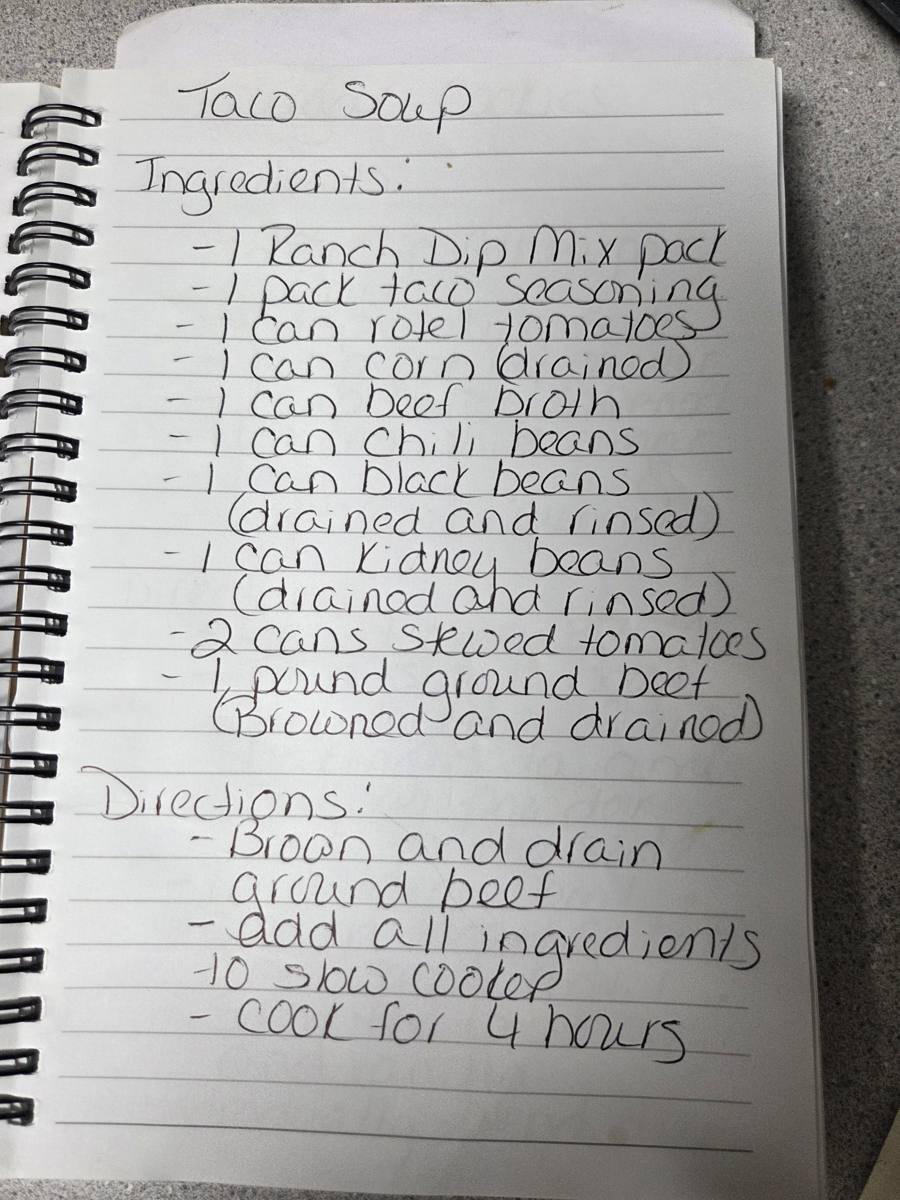 Taco Soup
Ingredients:
- 1 Ranch Dip Mix pack
- 1 pack taco seasoning
- 1 can rotel tomatoes
- 1 can corn (drained)
- 1 can beef broth
- 1 can chili beans
- 1 can black beans
(drained and rinsed)
- 1 can kidney beans
(drained and rinsed)
- 2 cans stewed tomatoes
- 1 pound ground beef
(Browned and drained)
Directions:
- Brown and drain
ground beef
- add all ingredients
to slow cooker
- cook for 4 hours